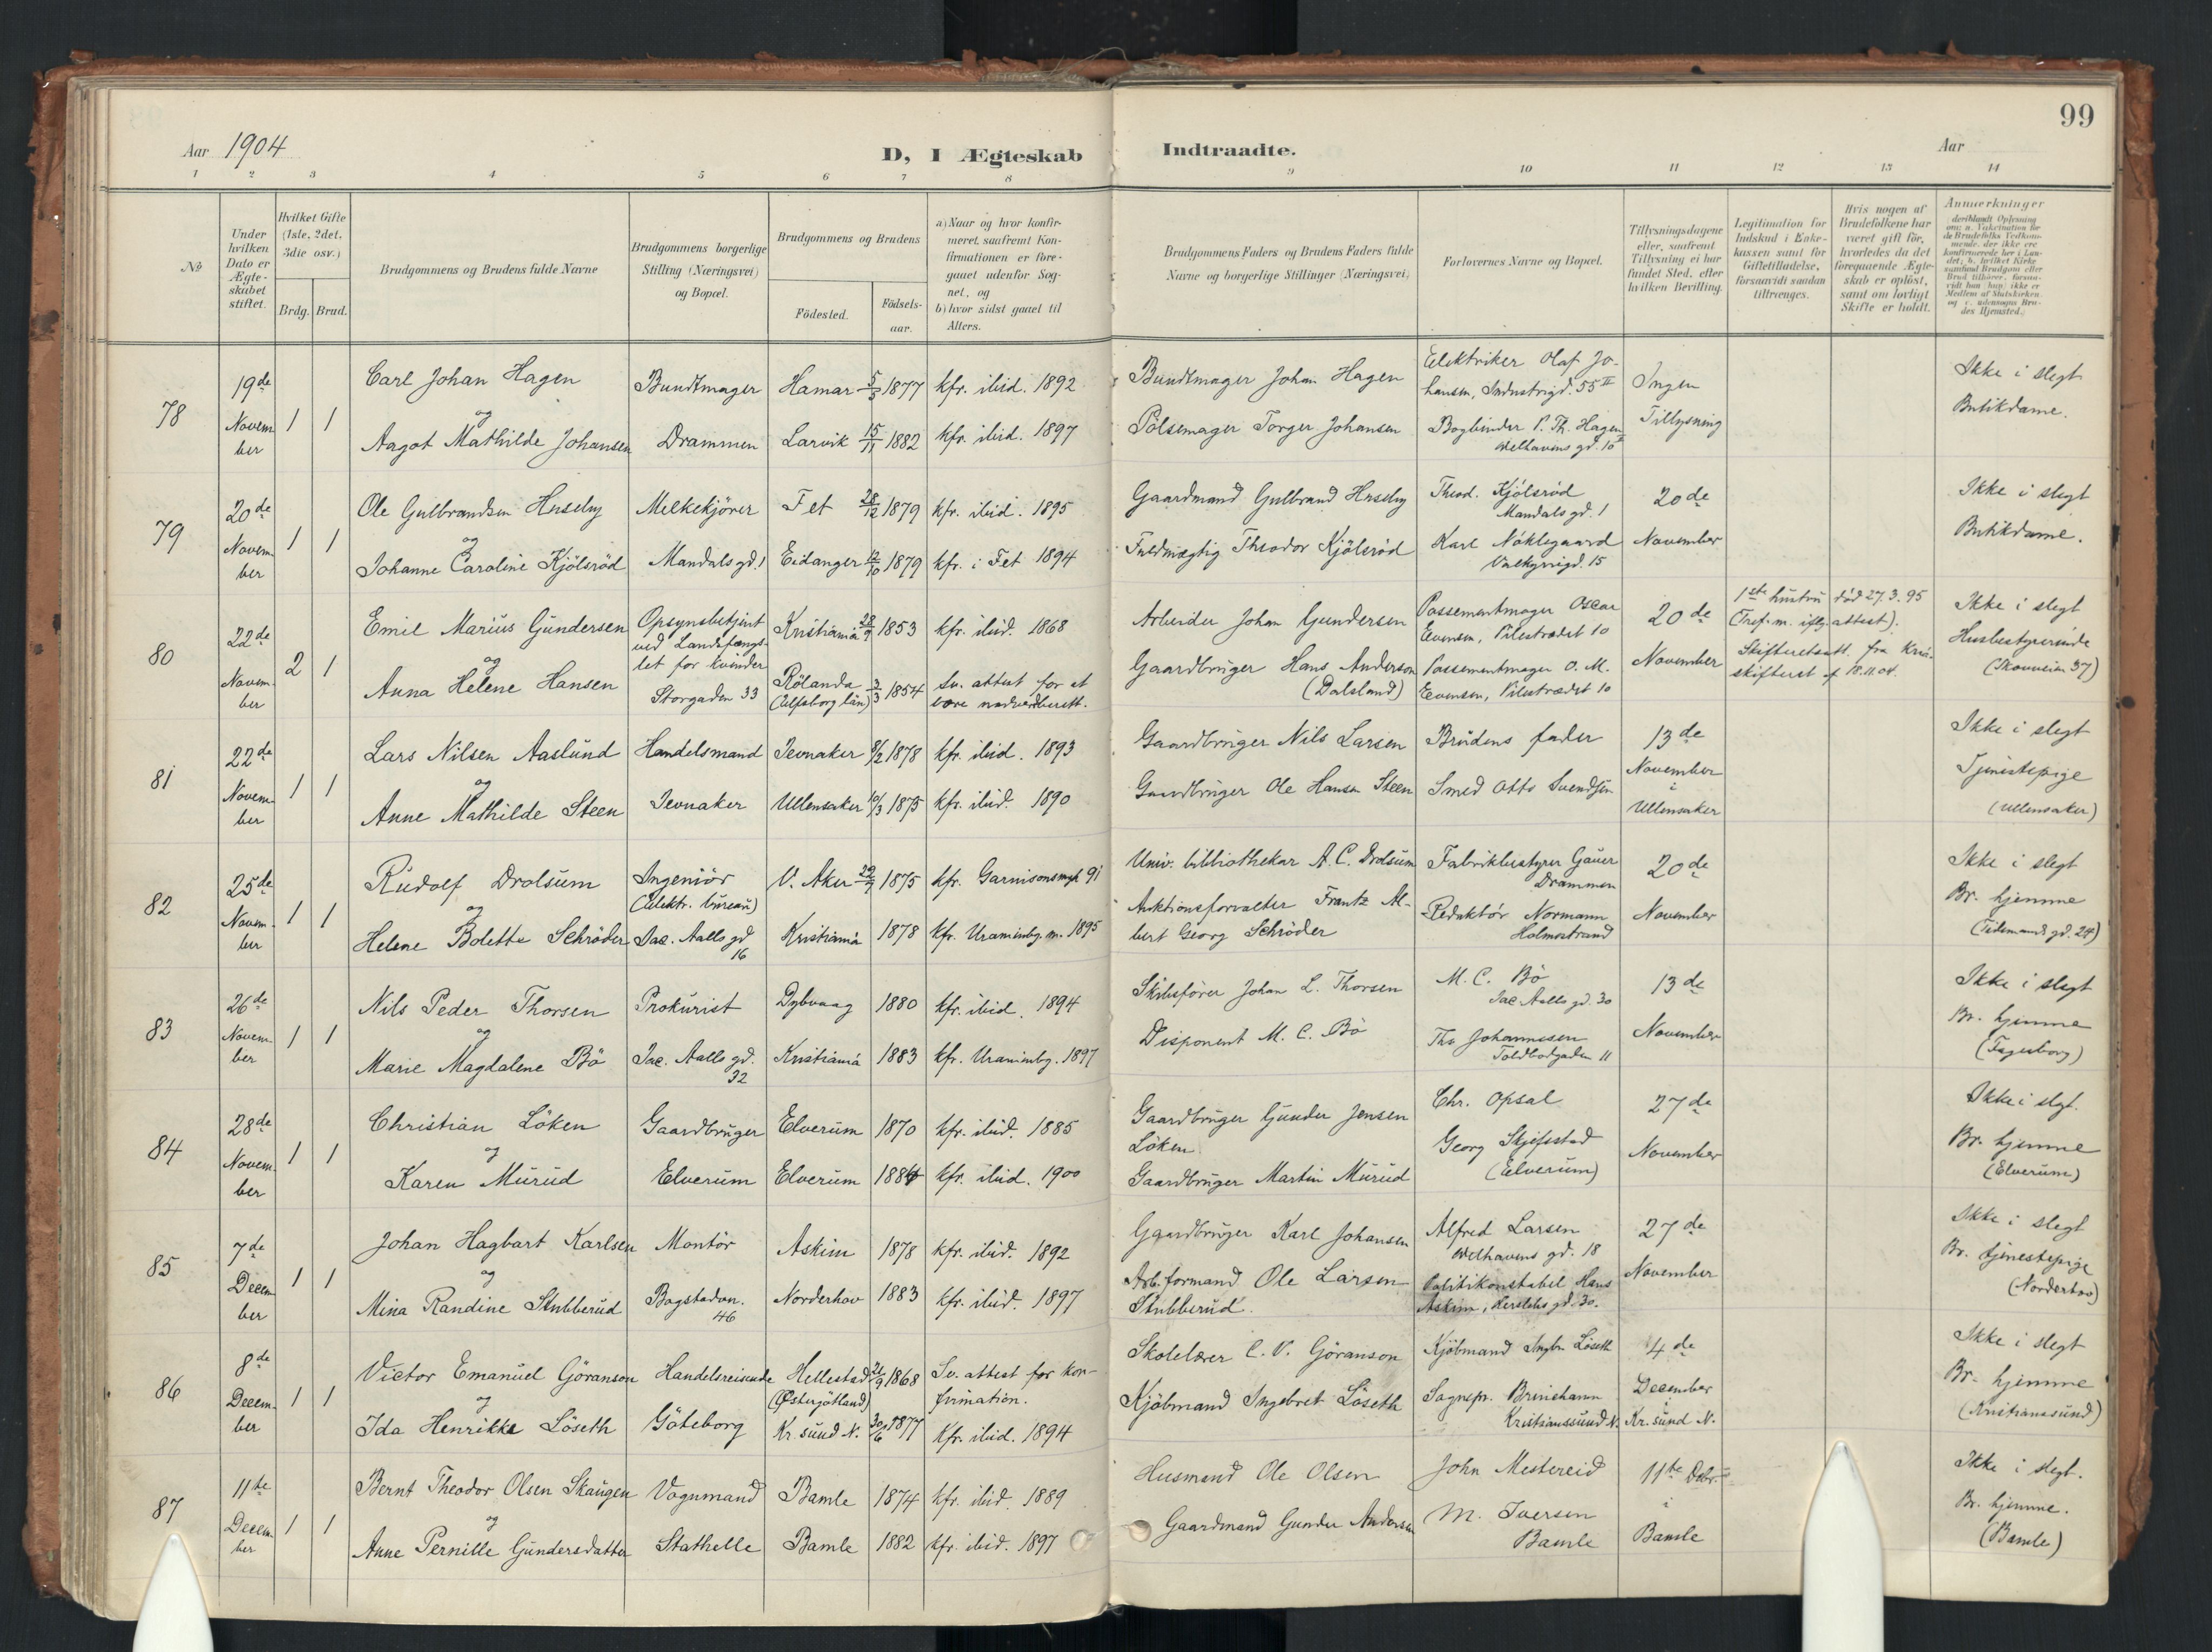 99
Aar 1904 D, I Ægteskab Indtraadte. Aar
1 2 3 4 5 6 7 8 9 10 11 12 13 14
No
Under hvilken Dato er Ægte-skabet stiftet.
Hvilket Gifte (1ste, 2det, 3die osv.)
Brdg. Brud.
Brudgommens og Brudens fulde Navne
Brudgommens borgerlige Stilling (Næringsvei) og Bopæl.
Brudgommens og Brudens
Fødested.
Fødsels-aar.
a) Naar og hvor konfir-
meret, saafremt Kon-
firmationen er fore-
gaaet udenfor Sog-
net, og
b) hvor sidst gaaet til
Alters.
Brudgommens Faders og Brudens Faders fulde
Navne og borgerlige Stillinger (Næringsvei)
Forlovernes Navne og Bopæl.
Tillysningsdagene
eller, saafremt
Tillysning ei har
fundet Sted, efter
hvilken Bevilling.
Legitimation for
Indskud i Enke-
kassen samt for
Giftetilladelse,
forsaavidt saadan
tiltrænges.
Hvis nogen af
Brudefolkene har
været gift før,
hvorledes da det
foregaaende Ægte-
skab er opløst,
samt om lovligt
Skifte er holdt.
Anmærkninger
78 19de November 1 1
Carl Johan Hagen
og
Aagot Mathilde Johansen
Bundtmager
Drammen
Hamar 5/3 1877 kfr. ibid. 1892
Larvik 15/11 1882 kfr. ibid. 1897
Bundtmager Johan Hagen
Pölsemager Torger Johansen
Elektriker Olaf Jo-
hansen, Industrigd. 55 II
Bogbinder P. Th. Hagen
Welhavens gd. 10
Ingen
Tillysning
Ikke i slegt
Butikdame.
79 20de November 1 1
Ole Gulbrandsen Huseby
og
Johanne Caroline Kjölsröd
Melkekjörer
Mandals gd. 1
Fet 28/12 1879 kfr. ibid. 1895
Eidanger 12/10 1879 kfr. i Fet 1894
Gaardmand Gulbrand Huseby
Fuldmægtig Theodor Kjölsröd
Theod. Kjölsröd
Mandals gd. 1
Karl Nöklegaard
Valkyrigd. 15
20de
November
Ikke i slegt
Butikdame.
80 22de November 2 1
Emil Marius Gundersen
og
Anna Helene Hansen
Opsynsbetjent
ved Landsfængs-
let for kvinder
Storgaden 33
Kristiania 28/9 1853 kfr. ibid. 1868
Rölanda
(Elfsborg län) 3/3 1854 Sv. attest for at
være nadverdberett.
Arbeider Johan Gundersen
Gaardbruger Hans Anderson
(Dalsland)
Possementmager Oscar
Evensen, Pilestrædet 10
Possementmager O. M.
Evensen, Pilestrædet 10
20de
November
1ste hustru död 27.3.95
(Tref. m. iflg. attest).
Skifteretsatt. fra Kria.
skifteret af 18.11.04.
Ikke i slegt
Husbestyrerinde
(Skovveien 37)
81 22de November 1 1
Lars Nilsen Aaslund
og
Anne Mathilde Steen
Handelsmand
Jevnaker
Jevnaker 8/2 1878 kfr. ibid. 1893
Ullensaker 10/3 1875 kfr. ibid. 1890
Gaardbruger Nils Larsen
Gaardbruger Ole Hansen Steen
Brudens fader
Smed Otto Svendsen
13de
November
i
Ullensaker
Ikke i slegt
Tjenestepige
(Ullensaker)
82 25de November 1 1
Rudolf Drolsum
og
Helene Bolette Schröder
Ingeniör
(Elektr. bureau)
Jac. Aalls gd
16
V. Aker 29/7 1875 kfr. Garnisonsmgh 91
Kristiania 1878 kfr. Uranienbg. m. 1895
Univ. bibliothekar A. C. Drolsum
Auktionsforvalter Frantz Al-
bert Georg Schröder
Fabrikbestyrer Gauer
Drammen
Redaktör Normann
Holmestrand
20de
November
Ikke i slegt
Br. hjemme
(Tidemands gd. 24)
83 26de November 1 1
Nils Peder Thorsen
og
Marie Magdalene Bö
Prokurist
Jac. Aalls gd.
32
Dybvaag 1880 kfr. ibid. 1894
Kristiania 1883 kfr. Uranienbg. 1897
Skibsförer Johan L. Thorsen
Disponent M. C. Bö
M. C. Bö
Jac Aalls gd. 30
Th. Johannessen
Toldbodgaden 11
13de
November
Ikke i slegt
Br. hjemme
(Fagerborg)
84 28de November 1 1
Christian Löken
og
Karen Murud
Gaardbruger
Elverum
Elverum 1870 kfr. ibid. 1885
Elverum 1884 kfr. ibid. 1900
Gaardbruger Gunder Jensen
Löken
Gaardbruger Martin Murud
Chr. Opsal
Georg Skjefstad
(Elverum)
27de
November
Ikke i slegt.
Br. hjemme
(Elverum)
85 7de December 1 1
Johan Hagbart Karlsen
og
Mina Randine Stubberud
Montör
Bogstadvn.
46
Askim 1878 kfr. ibid. 1892
Norderhov 1883 kfr. ibid. 1897
Gaardbruger Karl Johansen
Arb.formand Ole Larsen
Stubberud.
Alfred Larsen
Welhavens gd. 18
Politikonstabel Hans
Askim, Herslebs gd. 30.
27de
November
Ikke i slegt
Br. tjenestepige
(Norderhov)
86 8de December 1 1
Victor Emanuel Göranson
og
Ida Henrikke Löseth
Handelsreisende
Göteborg
Hellestad
(Östergötland) 21/9 1868 Sv. attest for kon-
firmation.
Kr. sund N. 30/6 1877 kfr. ibid. 1894
Skolelærer C. V. Göranson
Kjöbmand Ingebret Löseth
Kjöbmand Ingbr. Löseth
Sognepr. Brinchann
Kristianssund N.
4de
December
Kr. sund N.
Ikke i slegt
Br. hjemme
(Kristianssund)
87 11te December 1 1
Bernt Theodor Olsen Skaugen
og
Anne Pernille Gundersdatter
Vognmand
Stathelle
Bamle 1874 kfr. ibid. 1889
Bamle 1882 kfr. ibid. 1897
Husmand Ole Olsen
Gaardmand Gunder Andersen
John Mestereid
M. Iversen
Bamle
11te Debr.
i
Bamle
Ikke i slegt.
Br. hjemme.
(Bamle)